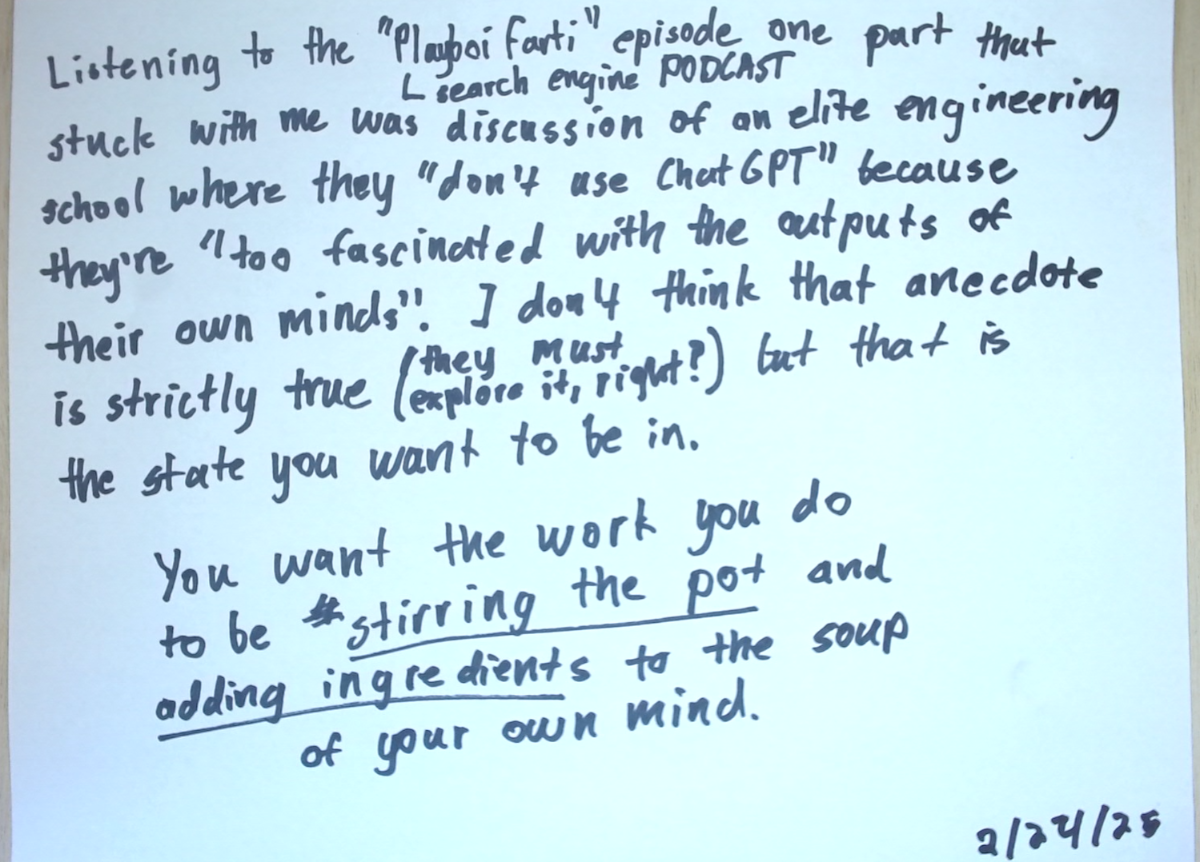 Listening to the "Playboi Farti" episode one part that
└ search engine PODCAST
stuck with me was discussion of an elite engineering
school where they "don't use ChatGPT" because
they're "too fascinated with the outputs of
their own minds". I don't think that anecdote
is strictly true (they must explore it, right?) but that is
the state you want to be in.
You want the work you do
to be stirring the pot and
adding ingredients to the soup
of your own mind.
2/24/25